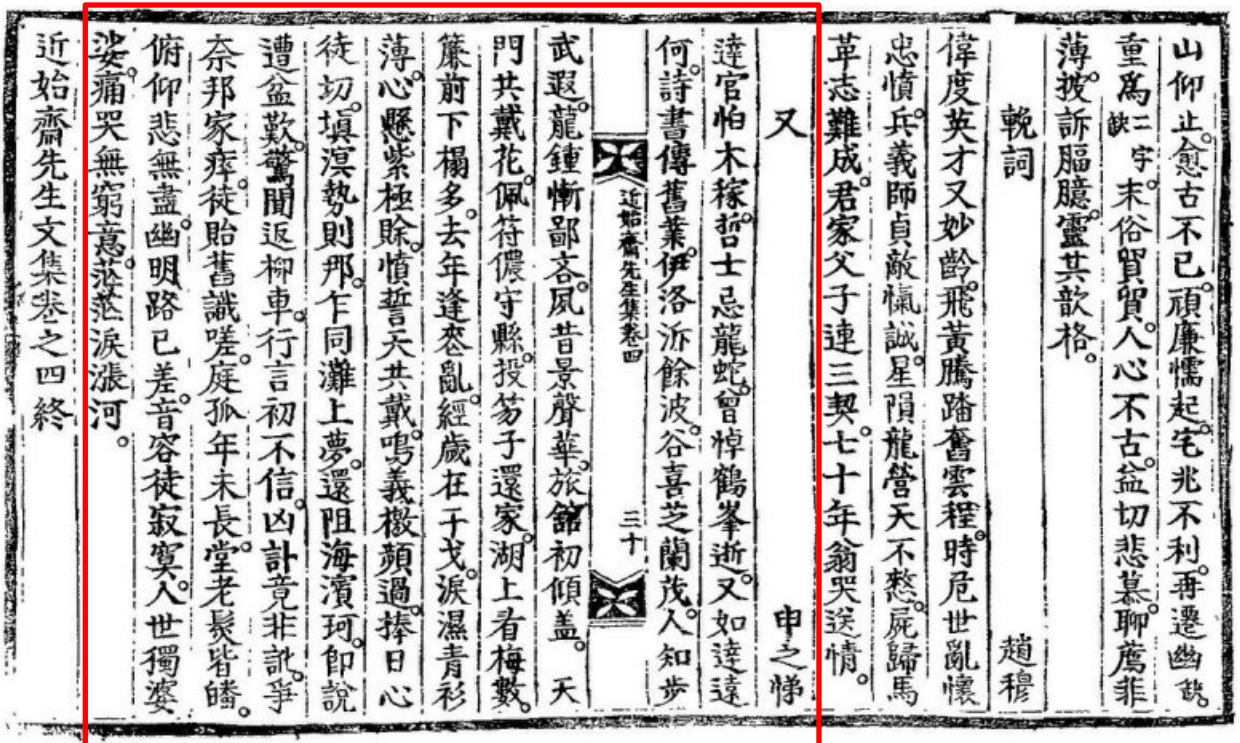 山仰止。愈古不已。頑廉懦起。宅兆不利。再遷幽缺。
重爲二字缺。末俗貿貿。人心不古。益切悲慕。聊薦菲
薄。披訴腷臆。靈其歆格。
輓詞 趙穆
偉度英才又妙齡。飛黃騰踏奮雲程。時危世亂懷
忠憤。兵義師貞敵愾誠。星隕龍營天不憖。屍歸馬
革志難成。君家父子連三契。七十年翁哭送情。
又 申之悌
達官怕木稼。哲士忌龍蛇。曾悼鶴峯逝。又如達遠
何。詩書傳舊業。伊洛泝餘波。谷喜芝蘭茂。人知步
近始齋先生集卷四 三十
武遐。龍鍾慚鄙吝。夙昔景聲華。旅舘初傾盖。天
門共戴花。佩符儂守縣。投笏子還家。湖上看梅數。
簾前下榻多。去年逢丕亂。經歲在干戈。淚濕青衫
薄。心懸紫極賒。憤誓天共戴。鳴義檄頻過。捧日心
徒切。塡溟勢則那。乍同灘上夢。還阻海濱珂。卽說
遭盆歎。驚聞返柳車。行言初不信。凶訃竟非訛。爭
奈邦家瘁。徒貽舊識嗟。庭孤年未長。堂老髮皆皤。
俯仰悲無盡。幽明路已差。音容徒寂寞。人世獨婆
娑。痛哭無窮意。茫茫淚漲河。
近始齋先生文集卷之四終